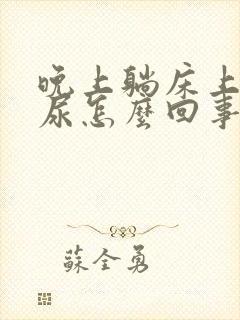 晚上躺床上
尿怎麼回事
蘇全勇